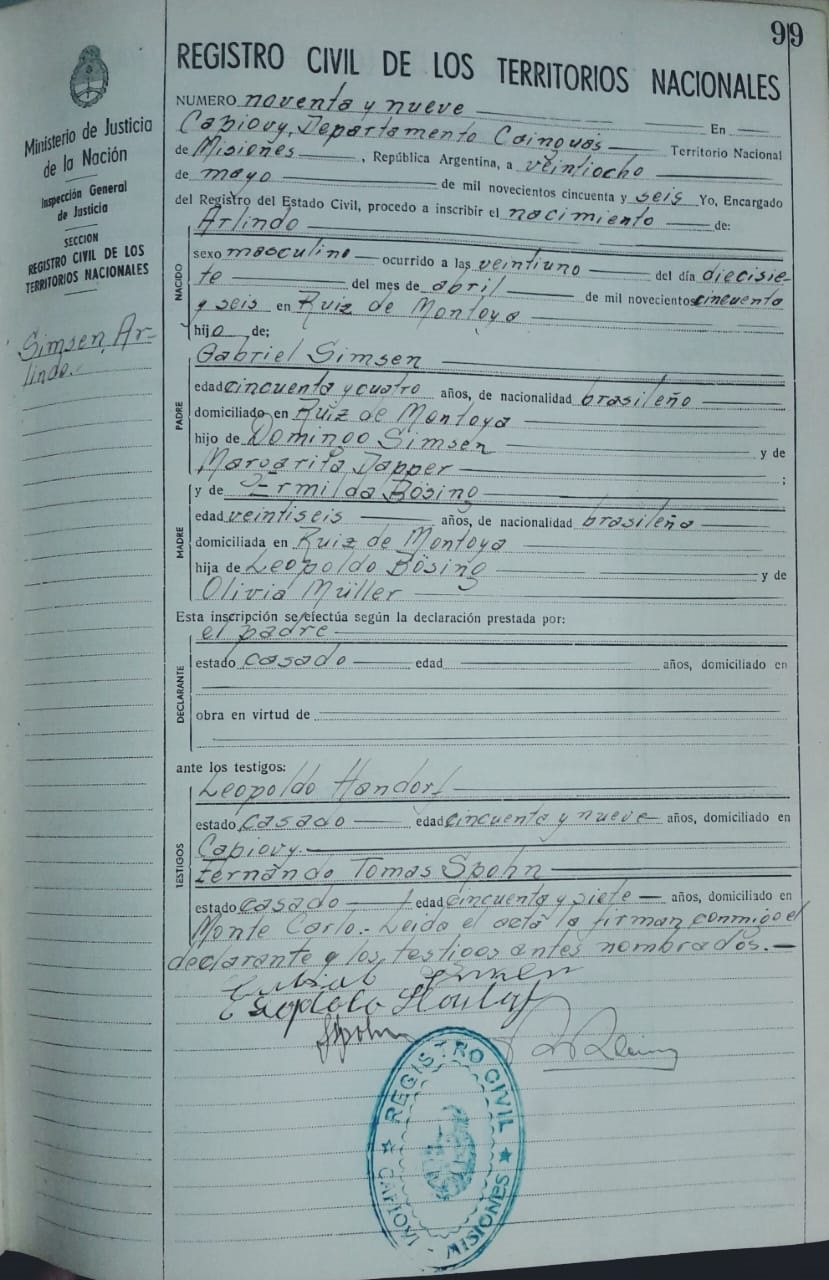 99
REGISTRO CIVIL DE LOS TERRITORIOS NACIONALES
Ministerio de Justicia
de la Nación
Inspección General
de Justicia
SECCION
REGISTRO CIVIL DE LOS
TERRITORIOS NACIONALES
Simsen, Ar-
lindo.
NUMERO noventa y nueve En
Capiovy, Departamento Cainguás Territorio Nacional
de Misiones, República Argentina, a veintiocho
de mayo de mil novecientos cincuenta y seis Yo, Encargado
del Registro del Estado Civil, procedo a inscribir el nacimiento de:
NACIDO
Arlindo
sexo masculino ocurrido a las veintiuno del día diecisie-
te del mes de abril de mil novecientos cincuenta
y seis en Ruiz de Montoya
hijo de;
PADRE
Gabriel Simsen
edad cincuenta y cuatro años, de nacionalidad brasileño
domiciliado en Ruiz de Montoya
hijo de Domingo Simsen y de
Margarita Dapper ;
MADRE
y de Ermilda Bösing
edad veintiseis años, de nacionalidad brasileña
domiciliada en Ruiz de Montoya
hija de Leopoldo Bösing y de
Olivia Müller
Esta inscripción se efectúa según la declaración prestada por:
DECLARANTE
el padre
estado casado edad años, domiciliado en
obra en virtud de
ante los testigos:
TESTIGOS
Leopoldo Handorf
estado casado edad cincuenta y nueve años, domiciliado en
Capiovy.
Fernando Tomas Spohn
estado casado edad cincuenta y siete años, domiciliado en
Monte Carlo.- Leida el acta la firman conmigo el
declarante y los testigos antes nombrados.-
Spohn
REGISTRO CIVIL
CAPIOVI - MISIONES